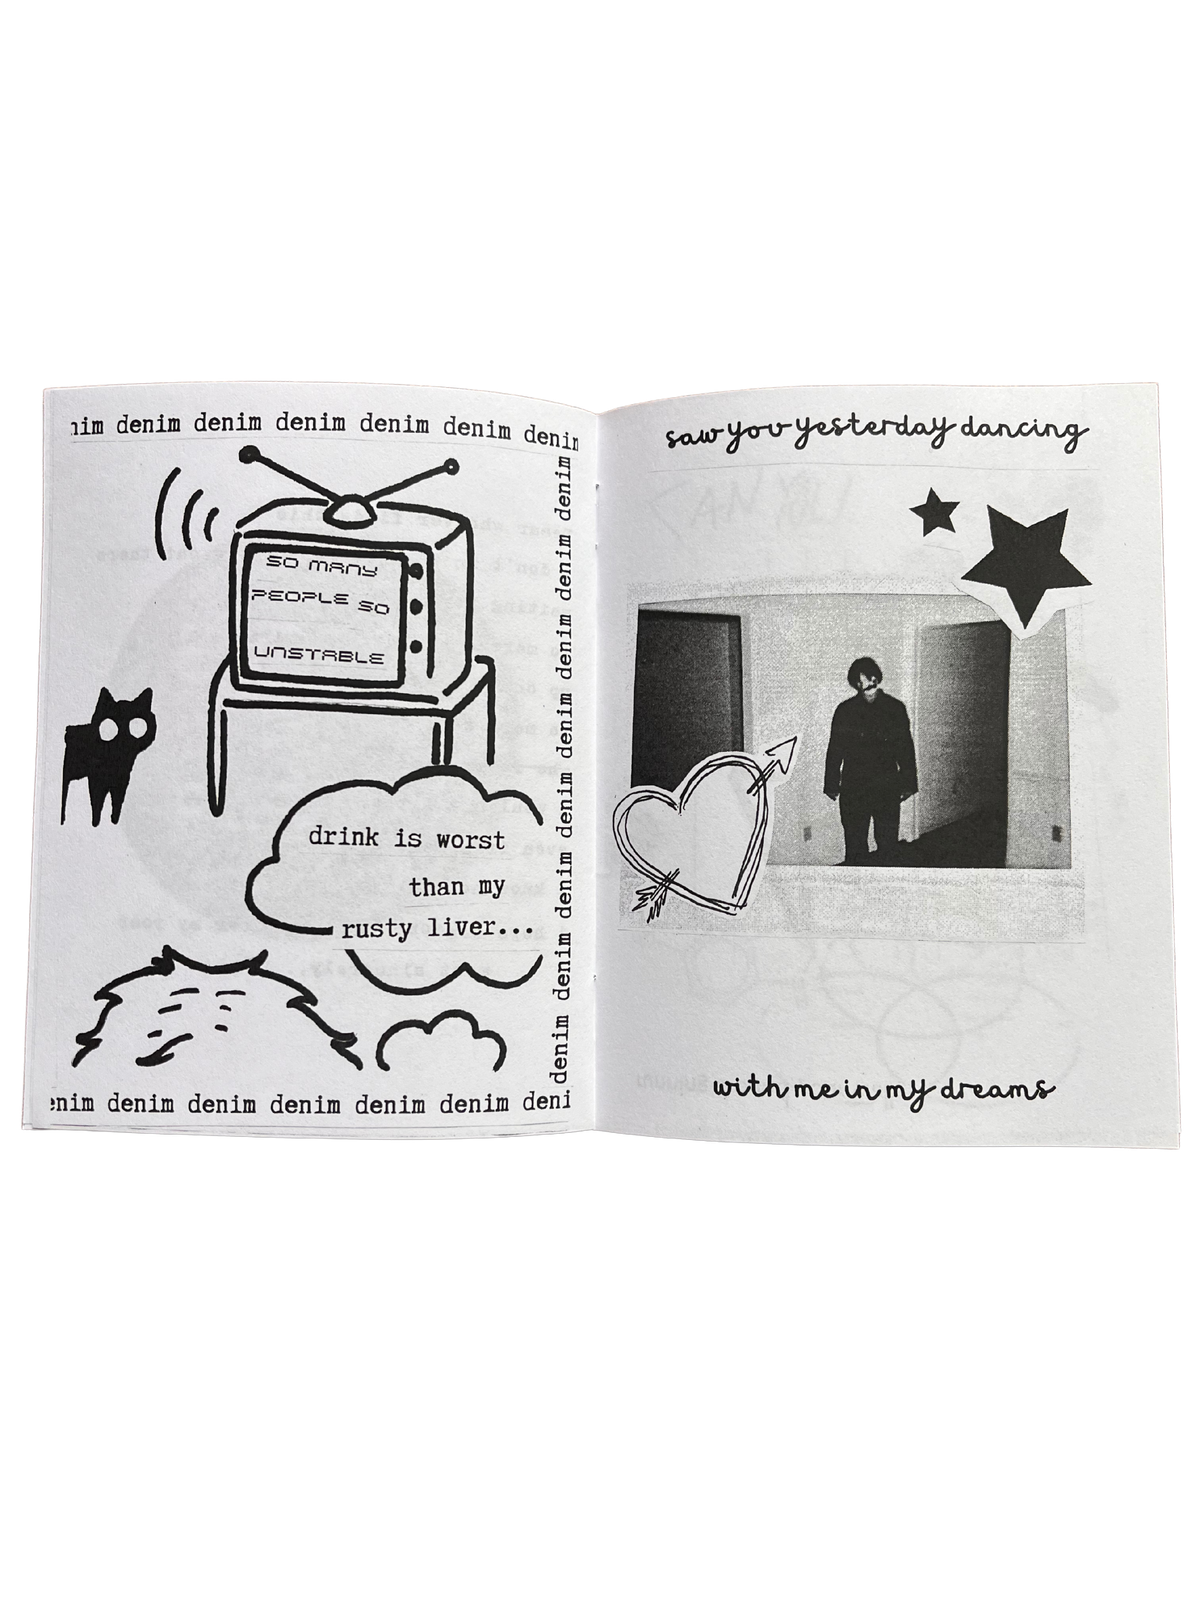 nim denim denim denim denim denim denim
SO MANY
PEOPLE SO
UNSTABLE
drink is worst
than my
rusty liver...
denim denim denim denim denim denim denim denim
enim denim denim denim denim denim deni
saw you yesterday dancing
with me in my dreams